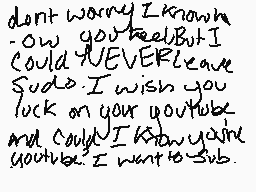 dont worry I know h
-ow you feel But I
Could NEVER Leave
Sudo. I wish you
luck on your youtube
and could I know you're
youtube? I want to sub.